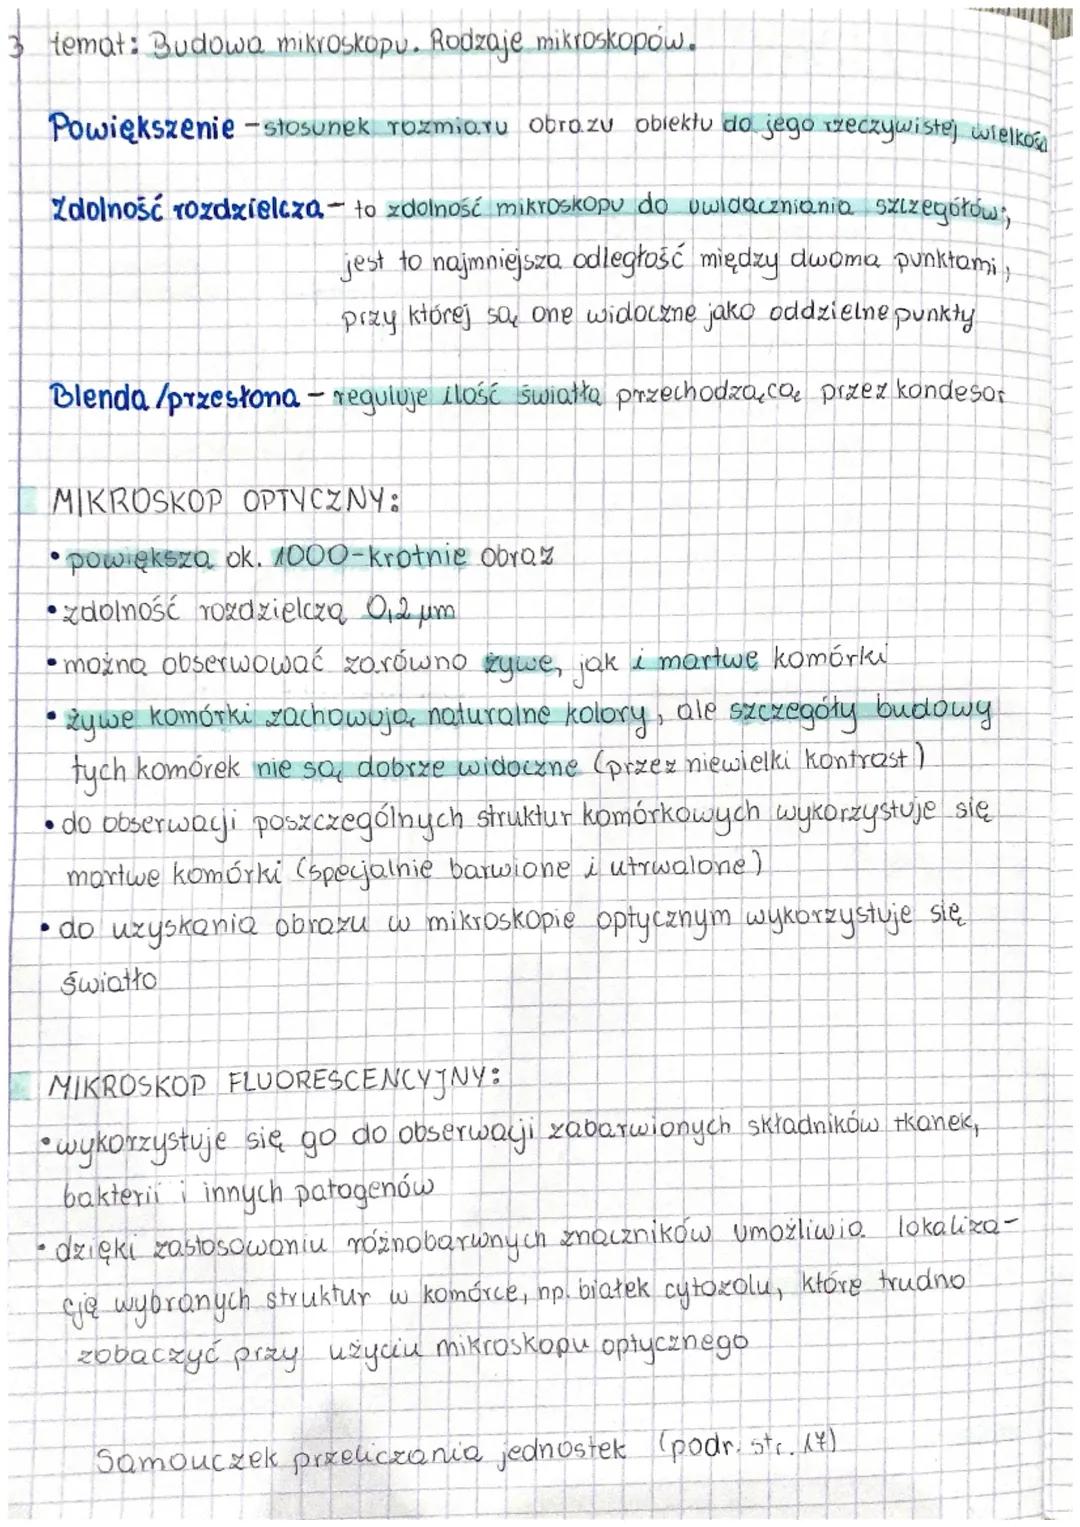 3 temat: Budowa mikroskopu. Rodzaje mikroskopów.
Powiększenie - stosunek rozmiaru obrazu obiektu do jego rzeczywistej wielkości
Zdolność rozdzielcza - to zdolność mikroskopu do uwidaczniania szczegółów;
jest to najmniejsza odległość między dwoma punktami,
przy której są one widoczne jako oddzielne punkty
Blenda/przesłona - reguluje ilość światła przechodzącą przez kondesor
MIKROSKOP OPTYCZNY:
• powiększa ok. 1000-krotnie obraz
• zdolność rozdzielczą 0,2 µm
• można obserwować zarówno żywe, jak i martwe komórki
• żywe komórki zachowują naturalne kolory, ale szczegóły budowy
tych komórek nie są dobrze widoczne (przez niewielki kontrast)
• do obserwacji poszczególnych struktur komórkowych wykorzystuje się
martwe komórki (specjalnie barwione i utrwalone)
• do uzyskania obrazu w mikroskopie optycznym wykorzystuje się
światło
MIKROSKOP FLUORESCENCYJNY:
• wykorzystuje się go do obserwacji zabarwionych składników tkanek,
bakterii i innych patogenów
• dzięki zastosowaniu różnobarwnych znaczników umożliwia lokaliza-
cję wybranych struktur w komórce, np. białek cytozolu, które trudno
zobaczyć przy użyciu mikroskopu optycznego
Samouczek przeliczania jednostek (podr. str. 17)